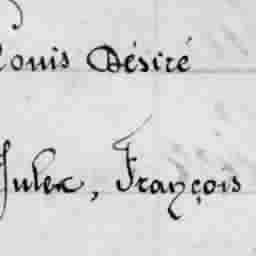 Louis Désiré
Jules, François